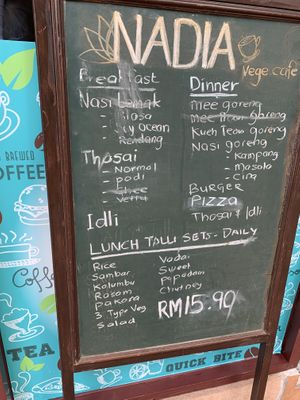 NADIA
Vege cafe
Breakfast
Nasi Lemak
- Biasa
- Icy Ocean
- Rendang
Thosai
- Normal
- podi
- Ghee
Idli
Dinner
Mee goreng
Mee Hoon goreng
Kueh Teow goreng
Nasi goreng
- Kampong
- Masala
- Cina
BURGER
PIZZA
Thosai & Idli
LUNCH TALLI SETS - DAILY
Rice
Sambar
Kolumbu
Rasam
Pakora
3 Type Veg
Salad
Vadai
Sweet
Papadam
Chutney
RM15.90
BREWED
COFFEE
Coffee
TEA
QUICK BITE